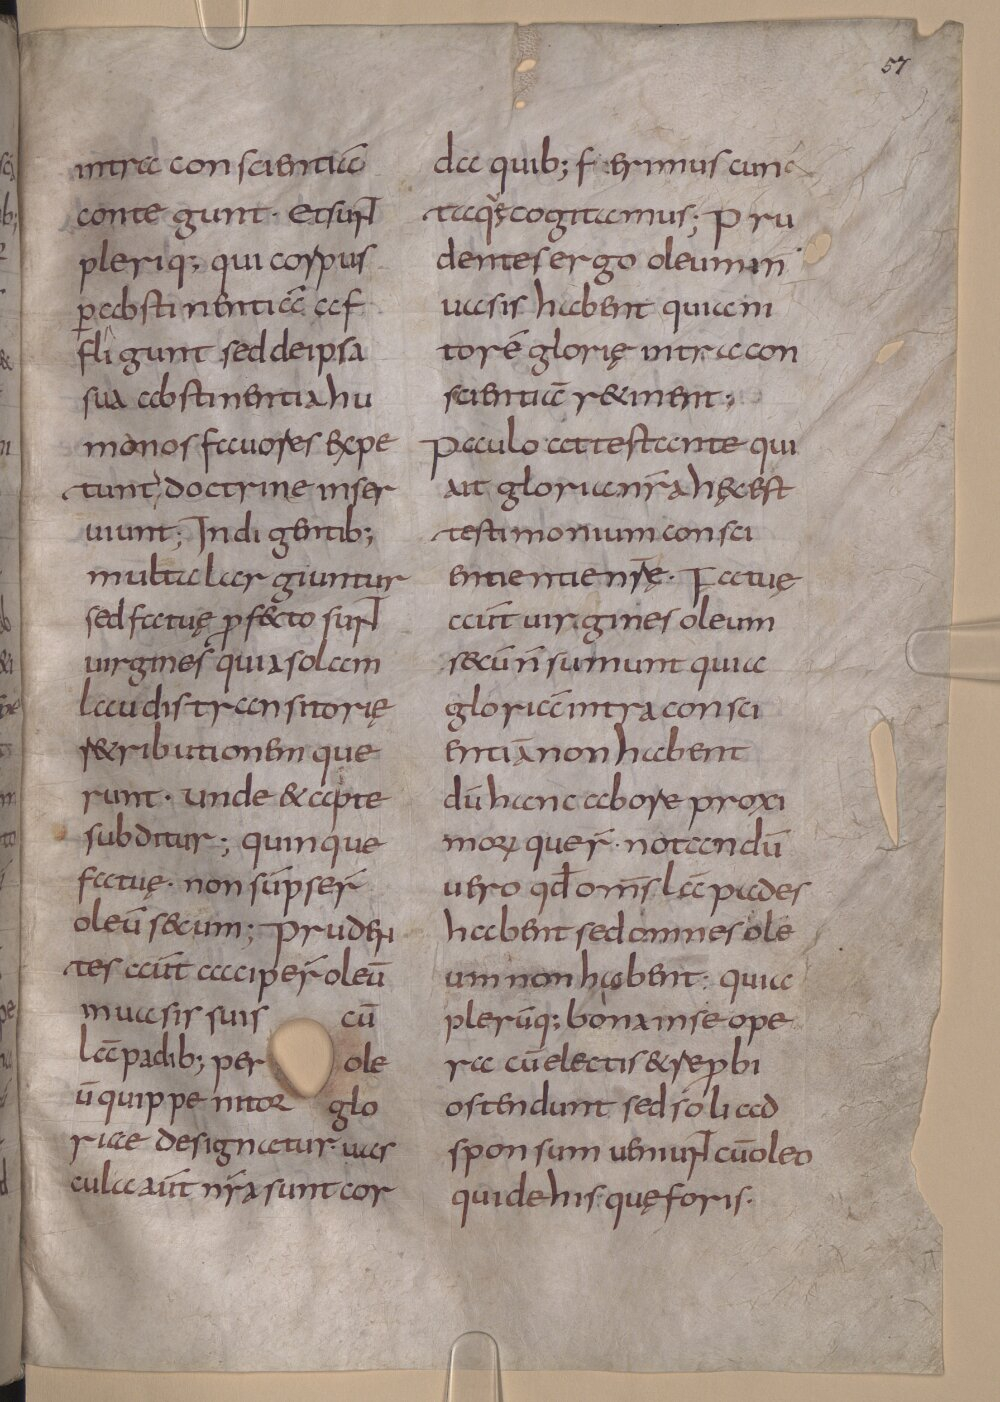 57
intra conscientiā
conte gunt · Et sunt
pleriq; qui corpus
p̱abstinentiā af
fligunt sed de ipsa
sua abstinentia hu
manos fauores expe
tunt; doctrine inser
uiunt; Indi gentib;
multa lar giuntur
sed fatuę ꝓfecto sunt
uirgines quia solam
laudis transitorię
retributionem que
runt · unde & apte
subditur; quinque
fatuę · non sūpser̄
oleū secum; Pruden
tes aūt acciper̄ oleū
in uasis suis cū
lāpadib; per ole
ū quippe nitor glo
riae designatur · uas
cula aūt nr̄a sunt cor
da quib; f erimus cunc
taq̨ cogitamus; Pru
dentes ergo oleum in
uasis habent quia ni
torē glorię intra con
scientiā retinent;
Paulo attestante qui
ait gloria nr̄a hęc est
testimonium consci
entientie nr̄ę · Fatuę
aūt uirgines oleum
secū n̄ sumunt quia
gloriā intra consci
entiā non habent
dū hanc ab ore proxi
morꝝ quer̄ · notandū
uero qđ om̄s lāpades
habent sed omnes ole
um non habent: quia
plerūq; bona in se ope
ra cū electis & reꝓbi
ostendunt sed soli ad
sponsum ueniunt cū oleo
qui de his quę foris ·